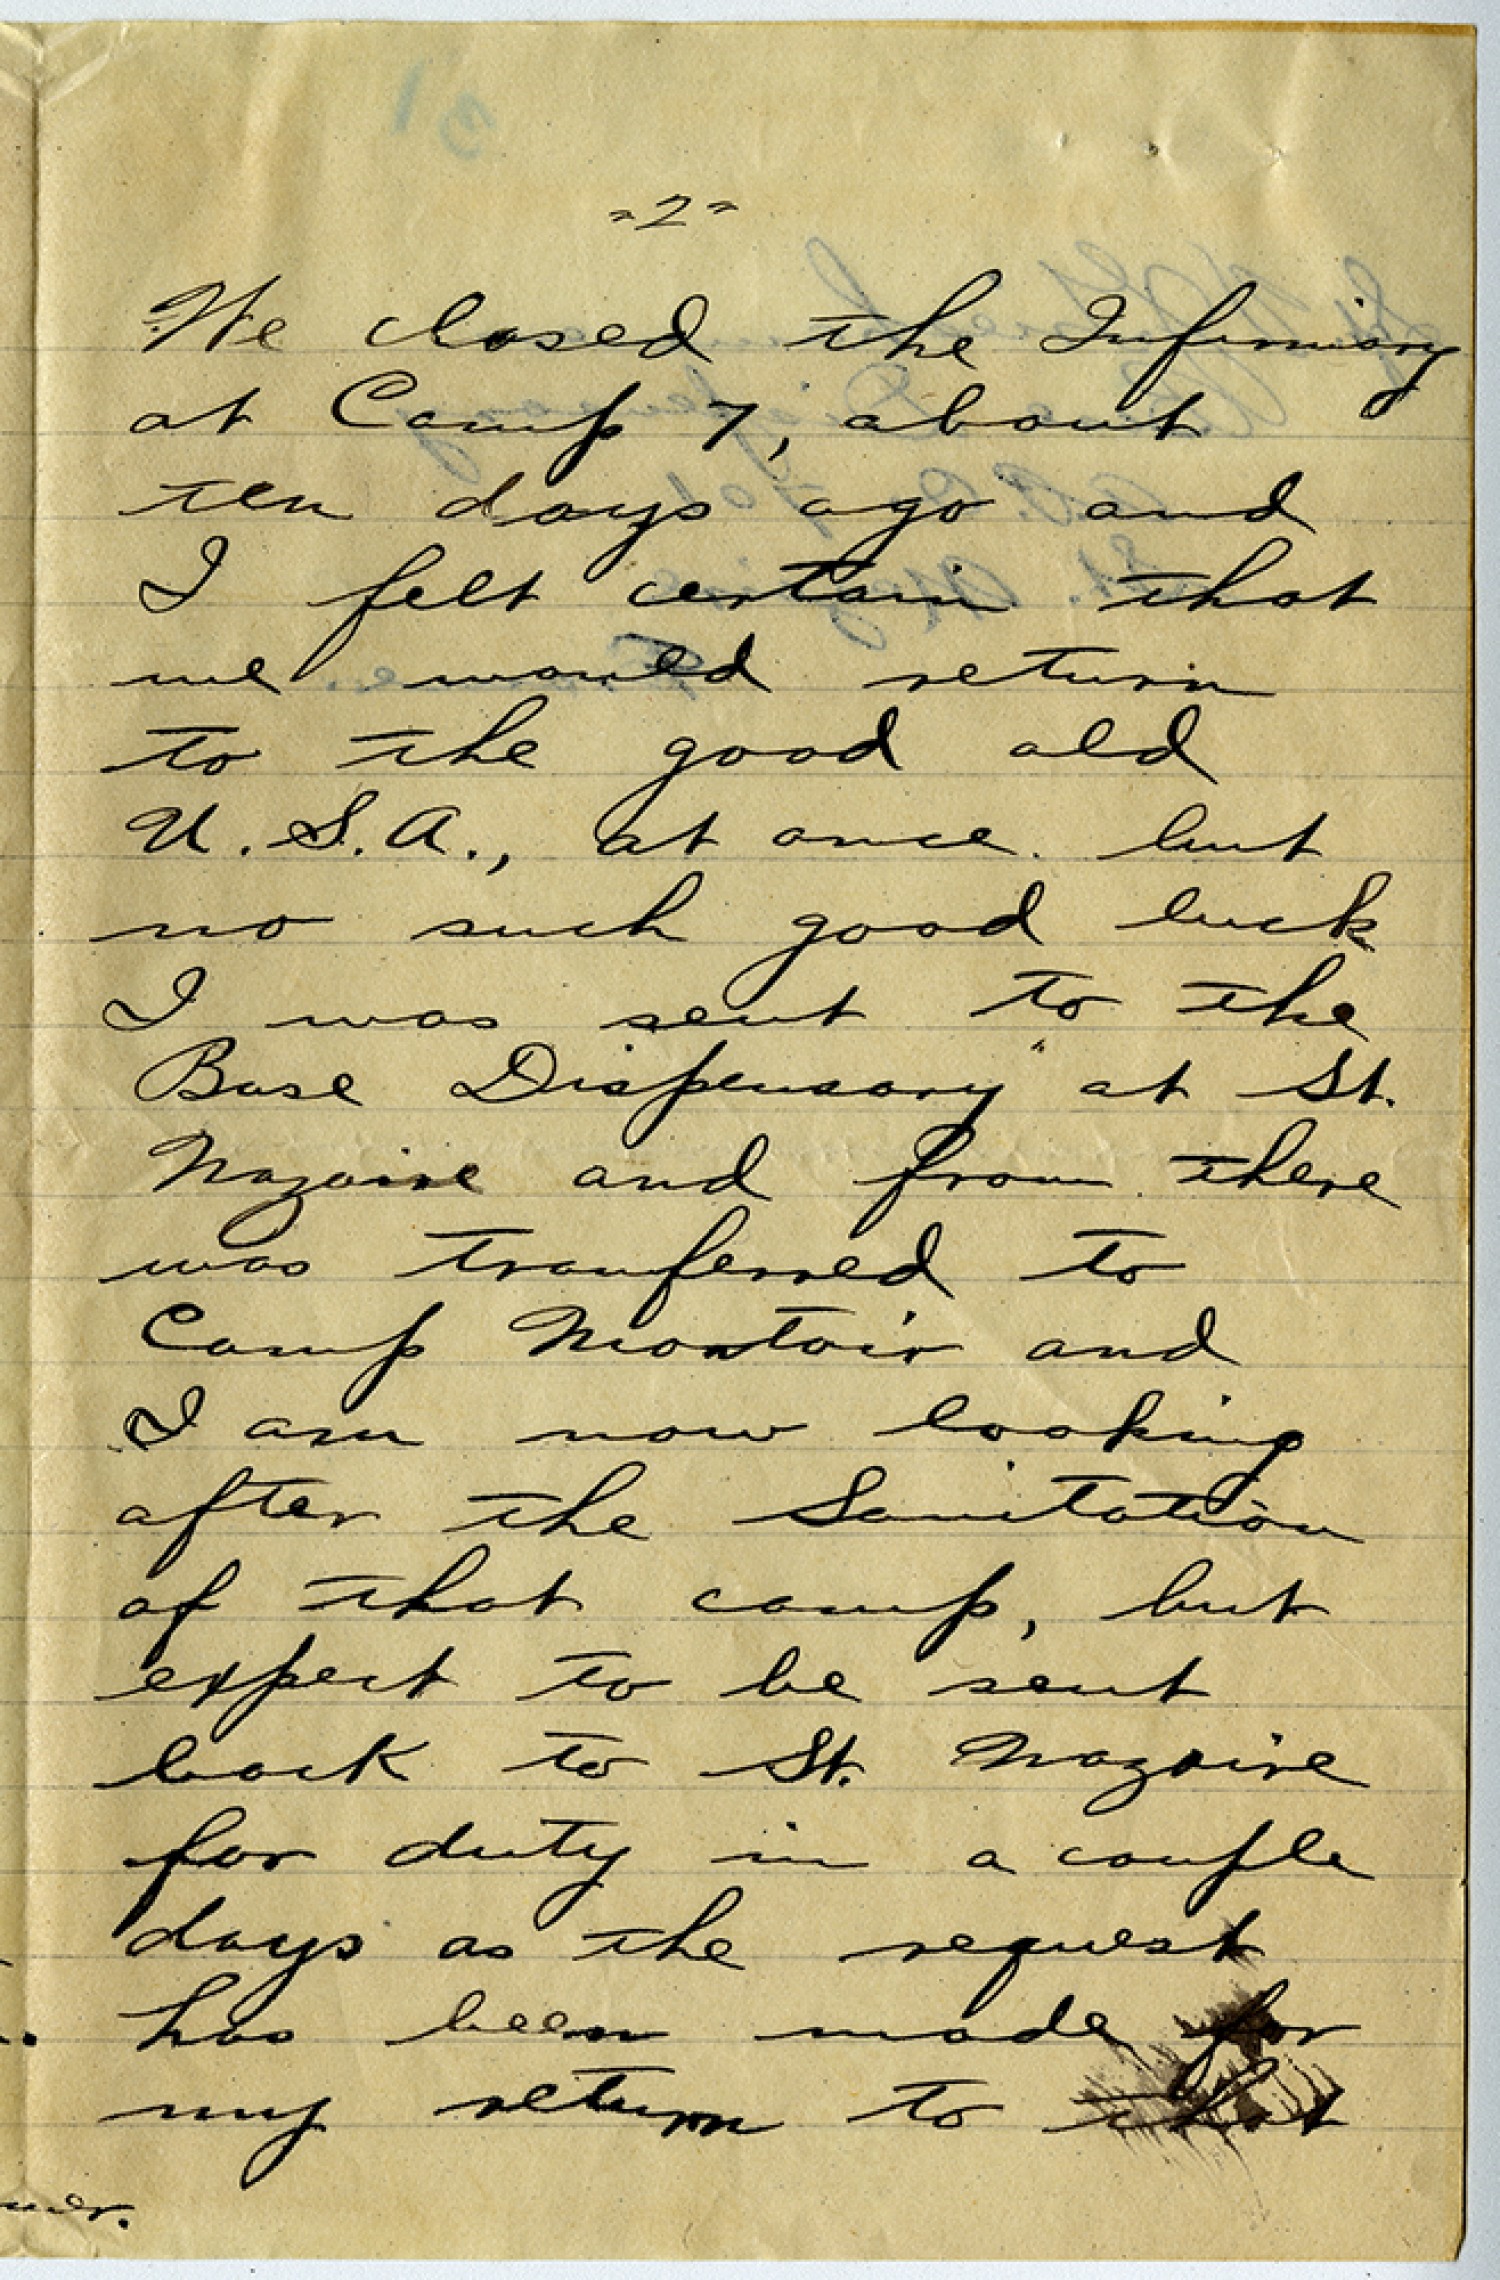 "2"
We closed the Infirmiary
at Camp 7, about
ten days ago and
I felt certain that
we would return
to the good old
U.S.A., at once but
no such good luck
I was sent to the
Base Dispensary at St.
Nazaire and from there
was tranferred to
Camp Montoir and
I am now looking
after the Sanitation
of that camp, but
expect to be sent
back to St. Nazaire
for duty in a couple
days as the request
has been made for
my return to that